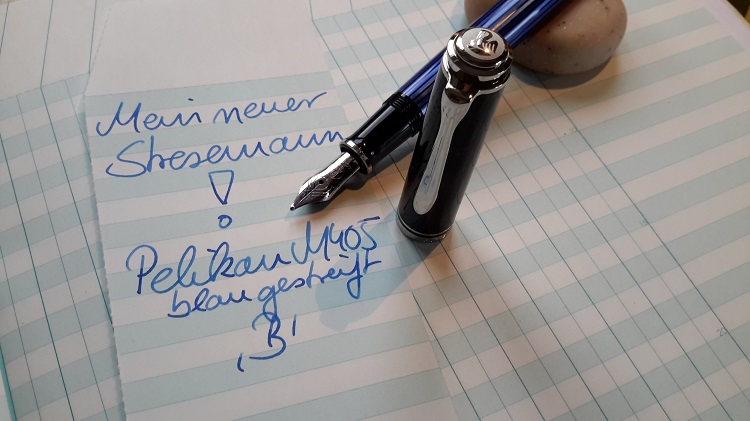 Mein neuer
Stresemann
!
Pelikan M405
blau gestreift
‚B'